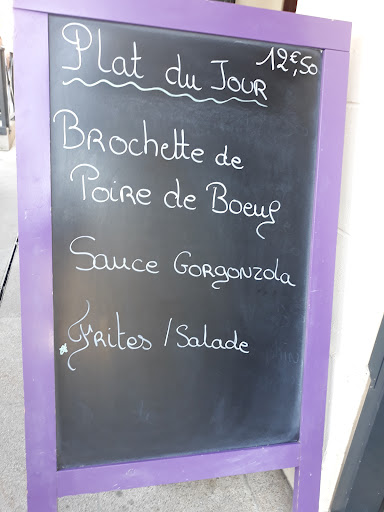 Plat du Jour 12€,50
Brochette de
Poire de Boeuf
Sauce Gorgonzola
Frites / Salade